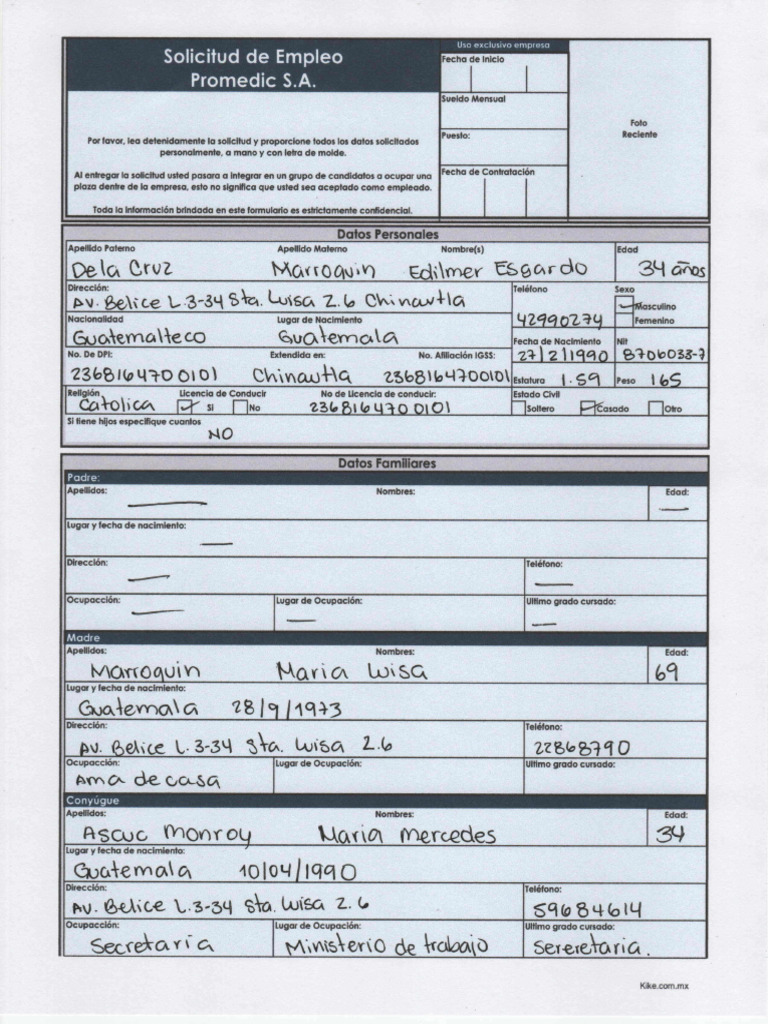 Solicitud de Empleo
Promedic S.A.
Uso exclusivo empresa
Fecha de Inicio
Sueldo Mensual
Puesto:
Fecha de Contratación
Foto
Reciente
Por favor, lea detenidamente la solicitud y proporcione todos los datos solicitados
personalmente, a mano y con letra de molde.
Al entregar la solicitud usted pasara a integrar en un grupo de candidatos a ocupar una
plaza dentro de la empresa, esto no significa que usted sea aceptado como empleado.
Toda la información brindada en este formulario es estrictamente confidencial.
Datos Personales
Apellido Paterno Apellido Materno Nombre(s) Edad
De la Cruz Marroquin Edilmer Esgardo 34 años
Dirección: Teléfono Sexo
Av. Belice L.3-34 Sta. Luisa Z.6 Chinautla 42990274 Masculino
Femenino
Nacionalidad Lugar de Nacimiento Fecha de Nacimiento Nit
Guatemalteco Guatemala 27/2/1990 8706033-7
No. De DPI: Extendida en: No. Afiliación IGSS:
2368164700101 Chinautla 2368164700101 Estatura 1.59 Peso 165
Religión Licencia de Conducir No de Licencia de conducir: Estado Civil
Catolica Si No 2368164700101 Soltero Casado Otro
Si tiene hijos especifique cuantos
NO
Datos Familiares
Padre:
Apellidos: Nombres: Edad:
Lugar y fecha de nacimiento:
Dirección: Teléfono:
Ocupacción: Lugar de Ocupación: Ultimo grado cursado:
Madre
Apellidos: Nombres: Edad:
Marroquin Maria Luisa 69
Lugar y fecha de nacimiento:
Guatemala 28/9/1973
Dirección: Teléfono:
Av. Belice L.3-34 Sta. Luisa Z.6 22868790
Ocupacción: Lugar de Ocupación: Ultimo grado cursado:
Ama de casa
Conyúgue
Apellidos: Nombres: Edad:
Ascuc Monroy Maria Mercedes 34
Lugar y fecha de nacimiento:
Guatemala 10/04/1990
Dirección: Teléfono:
Av. Belice L.3-34 Sta. Luisa Z.6 59684614
Ocupacción: Lugar de Ocupación: Ultimo grado cursado:
Secretaria Ministerio de trabajo Sereretaria.
Kike.com.mx